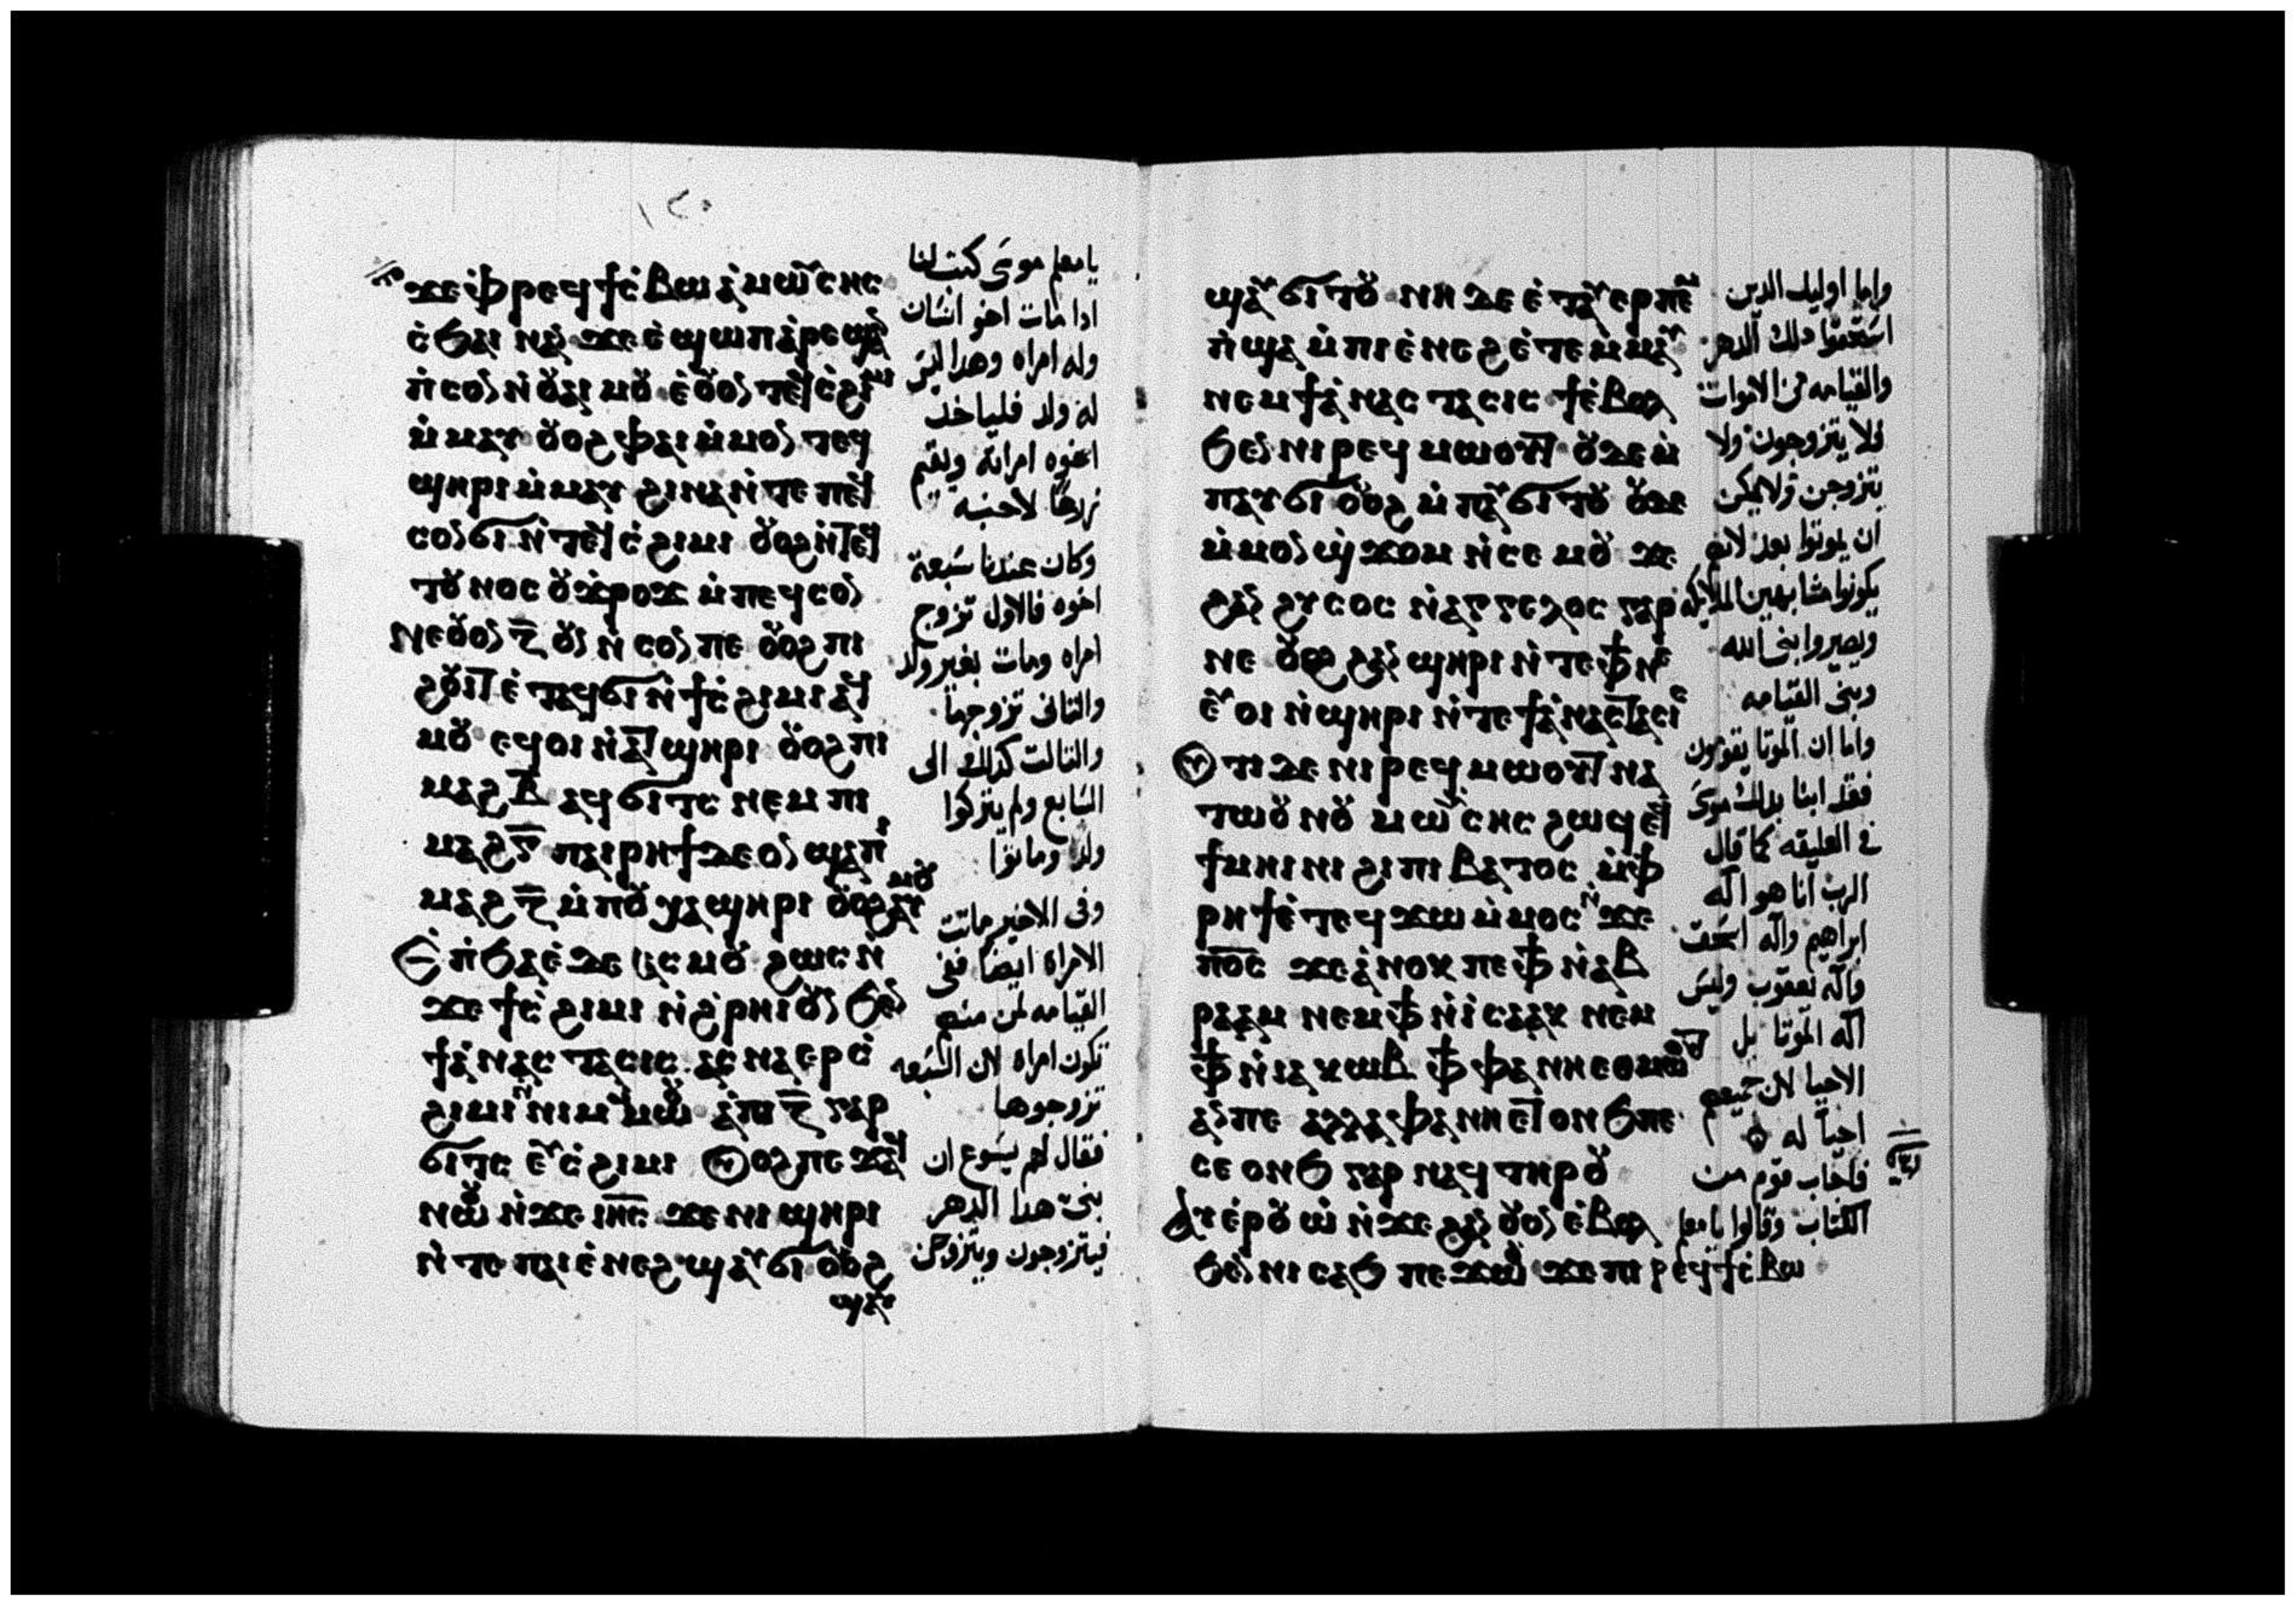 ٢٠
ϫⲉ ⲫⲣⲉϥϯⲥⲃⲱ ⲁ ⲙⲱⲩⲥⲏⲥ
ⲥϧⲁⲓ ⲛⲁⲛ ϫⲉ ⲉϣⲱⲡ ⲁⲣⲉϣⲁⲛ
ⲡⲥⲟⲛ ⲛⲟⲩⲁⲓ ⲙⲟⲩ ⲉⲟⲩⲟⲛ ⲧⲉϥⲥϩⲓⲙⲓ
ⲙⲙⲁⲩ ⲟⲩⲟϩ ⲫⲁⲓ ⲙⲙⲟⲛ ⲧⲉϥ
ϣⲏⲣⲓ ⲙⲙⲁⲩ ϩⲓⲛⲁ ⲛⲧⲉ ⲡⲉϥ
ⲥⲟⲛ ϭⲓ ⲛⲧⲉϥⲥϩⲓⲙⲓ ⲟⲩⲟϩ ⲛⲧⲉϥ
ⲧⲟⲩⲛⲟⲥ ⲟⲩϫⲣⲟϫ ⲙⲡⲉϥⲥⲟⲛ
ⲛⲉⲟⲩⲟⲛ ⲍ̅ ⲟⲩⲛ ⲛⲥⲟⲛ ⲡⲉ ⲟⲩⲟϩ ⲡⲓ
ϩⲟⲩⲓⲧ ⲉⲧⲁϥϭⲓ ⲛϯⲥϩⲓⲙⲓ ⲁϥ
ⲙⲟⲩ ⲉϥⲟⲓ ⲛⲁⲧϣⲏⲣⲓ ⲟⲩⲟϩ ⲡⲓ
ⲙⲁϩⲃ̅ ⲁϥϭⲓⲧⲥ ⲛⲉⲙ ⲡⲓ
ⲙⲁϩⲅ̅ ⲡⲁⲓⲣⲏϯ ⲇⲉ ⲟⲛ ϣⲁ ⲡⲓ
ⲙⲁϩⲍ̅ ⲙⲡⲟⲩⲭⲁ ϣⲏⲣⲓ ⲟⲩⲟϩ ⲁⲩⲙⲟⲩ
ⲉⲡϧⲁⲉ ⲇⲉ ⲁⲥⲙⲟⲩ ϩⲱⲥ ⲛ
ϫⲉ ϯⲥϩⲓⲙⲓ ⲛϩⲣⲏⲓ ⲟⲩⲛ ϧⲉⲛ
ϯⲁⲛⲁⲥⲧⲁⲥⲓⲥ ⲁⲥⲛⲁⲉⲣⲥ
ϩⲓⲙⲓ ⲛⲛⲓⲙ ⲙⲙⲱⲟⲩ ⲁ ⲡⲓⲍ̅ ⲅⲁⲣ
ϭⲓⲧⲥ ⲉⲩⲥϩⲓⲙⲓ ⲟⲩⲟϩ ⲡⲉϫⲁϥ
ⲛⲱⲟⲩ ⲛϫⲉ ⲓⲏ̅ⲥ̅ ϫⲉ ⲛⲓϣⲏⲣⲓ
ⲛⲧⲉ ⲡⲁⲓⲉⲛⲉϩ ϣⲁⲩϭⲓ ⲟⲩⲟϩ
ϣⲁⲩ
يامعلم موسى كتب لنا
ادا مات اخو انسان
وله امراه وهدا ليس
له ولد فلياخد
اخوه امراته ويقيم
زرعًا لاخيه
وكان عندنا سبعة
اخوه فالاول تزوج
امراه ومات بغير ولد
والتانى تزوجها
والتالت كدلك الى
السابع ولم يتركوا
ولدًا وماتوا
وفى الاخير ماتت
الامراه ايضًا ففى
القيامه لمن منهم
تكون امراه لان السبعه
تزوجوها
فقال لهم يسوع ان
بنى هدا الدهر
يتزوجون ويتزوجن
ϣⲁⲩϭⲓⲧⲟⲩ ⲛⲏ ⲇⲉ ⲉⲧⲁⲩⲉⲣⲡⲉⲙ
ⲡϣⲁ ⲙⲡⲓⲉⲛⲉϩ ⲉⲧⲉⲙⲙⲁⲩ
ⲛⲉⲙ ϯⲁⲛⲁⲥⲧⲁⲥⲓⲥ ϯⲉⲃⲟⲗ
ϧⲉⲛ ⲛⲓⲣⲉϥⲙⲱⲟⲩⲧ ⲟⲩⲇⲉ ⲙ
ⲡⲁⲩϭⲓ ⲟⲩⲟϩ ⲙⲡⲁⲩϭⲓⲧⲟⲩ ⲟⲩⲇⲉ
ⲙⲙⲟⲛ ϣϫⲟⲙ ⲛⲥⲉⲙⲟⲩ ϫⲉ
ϩⲁⲛ ϩⲩⲥⲟⲥ ⲛⲁⲅⲅⲉⲗⲟⲥ ⲅⲁⲣ
ⲛⲉ ⲟⲩⲟϩ ϩⲁⲛϣⲏⲣⲓ ⲛⲧⲉ ⲫϯ ⲛⲉ
ⲉⲩⲟⲓ ⲛϣⲏⲣⲓ ⲛⲧⲉ ϯⲁⲛⲁⲥⲧⲁⲥⲓⲥ
ⲟⲧⲓ ⲇⲉ ⲛⲓⲣⲉϥⲙⲱⲟⲩⲧ ⲛⲁ
ⲧⲱⲟⲩⲛⲟⲩ ⲙⲱⲩⲥⲏⲥ ϩⲱϥ ⲉϥ
ϯⲙⲏⲓⲛⲓ ϩⲓ ⲡⲓⲃⲁⲧⲟⲥ ⲙⲫ
ⲣⲏϯ ⲉⲧⲉϥϫⲱ ⲙⲙⲟⲥ ϫⲉ
ⲡⲟ̅ⲥ̅ ϫⲉ ⲁⲛⲟⲕ ⲡⲉ ⲫϯ ⲛⲁⲃ
ⲣⲁⲁⲙ ⲛⲉⲙ ⲫϯ ⲛⲓⲥⲁⲁⲕ ⲛⲉⲙ
ⲫϯ ⲛⲓⲁⲕⲱⲃ ⲫϯ ⲫⲁ ⲛⲏⲉⲑⲙⲱⲟⲩⲧ
ⲁⲛ ⲡⲉ ⲁⲗⲗⲁ ⲫⲁ ⲛⲏⲉⲧⲟⲛϧ ⲡⲉ
ⲥⲉⲟⲛϧ ⲅⲁⲣ ⲛⲁϥ ⲧⲏⲣⲟⲩ
ⲁⲩⲉⲣⲟⲩⲱ ⲛϫⲉ ϩⲁⲛⲟⲩⲟⲛ ⲉⲃⲟⲗ
ϧⲉⲛ ⲛⲓⲥⲁϧ ⲡⲉϫⲱⲟⲩ ϫⲉ ⲡⲓⲣⲉϥϯⲥⲃⲱ
واما اوليك الدين
استحقوا دلك الدهر
والقيامه من الاموات
فلا يتزوجون ولا
يتزوجن ولا يمكن
ان يموتوا بعد لانهم
يكونوا مشابهين الملايكه
ويصيروا بنى الله
وبنى القيامه
واما ان الموتا يقومون
فقد ابنا بدلك موسى
فى العليقه كما قال
الرب انا هو اله
ابراهيم واله اسحق
واله يعقوب وليس
اله الموتا بل
الاحيا لان جميعهم
احيا له
فاجاب قوم من
الكتاب وقالوا يامعلم